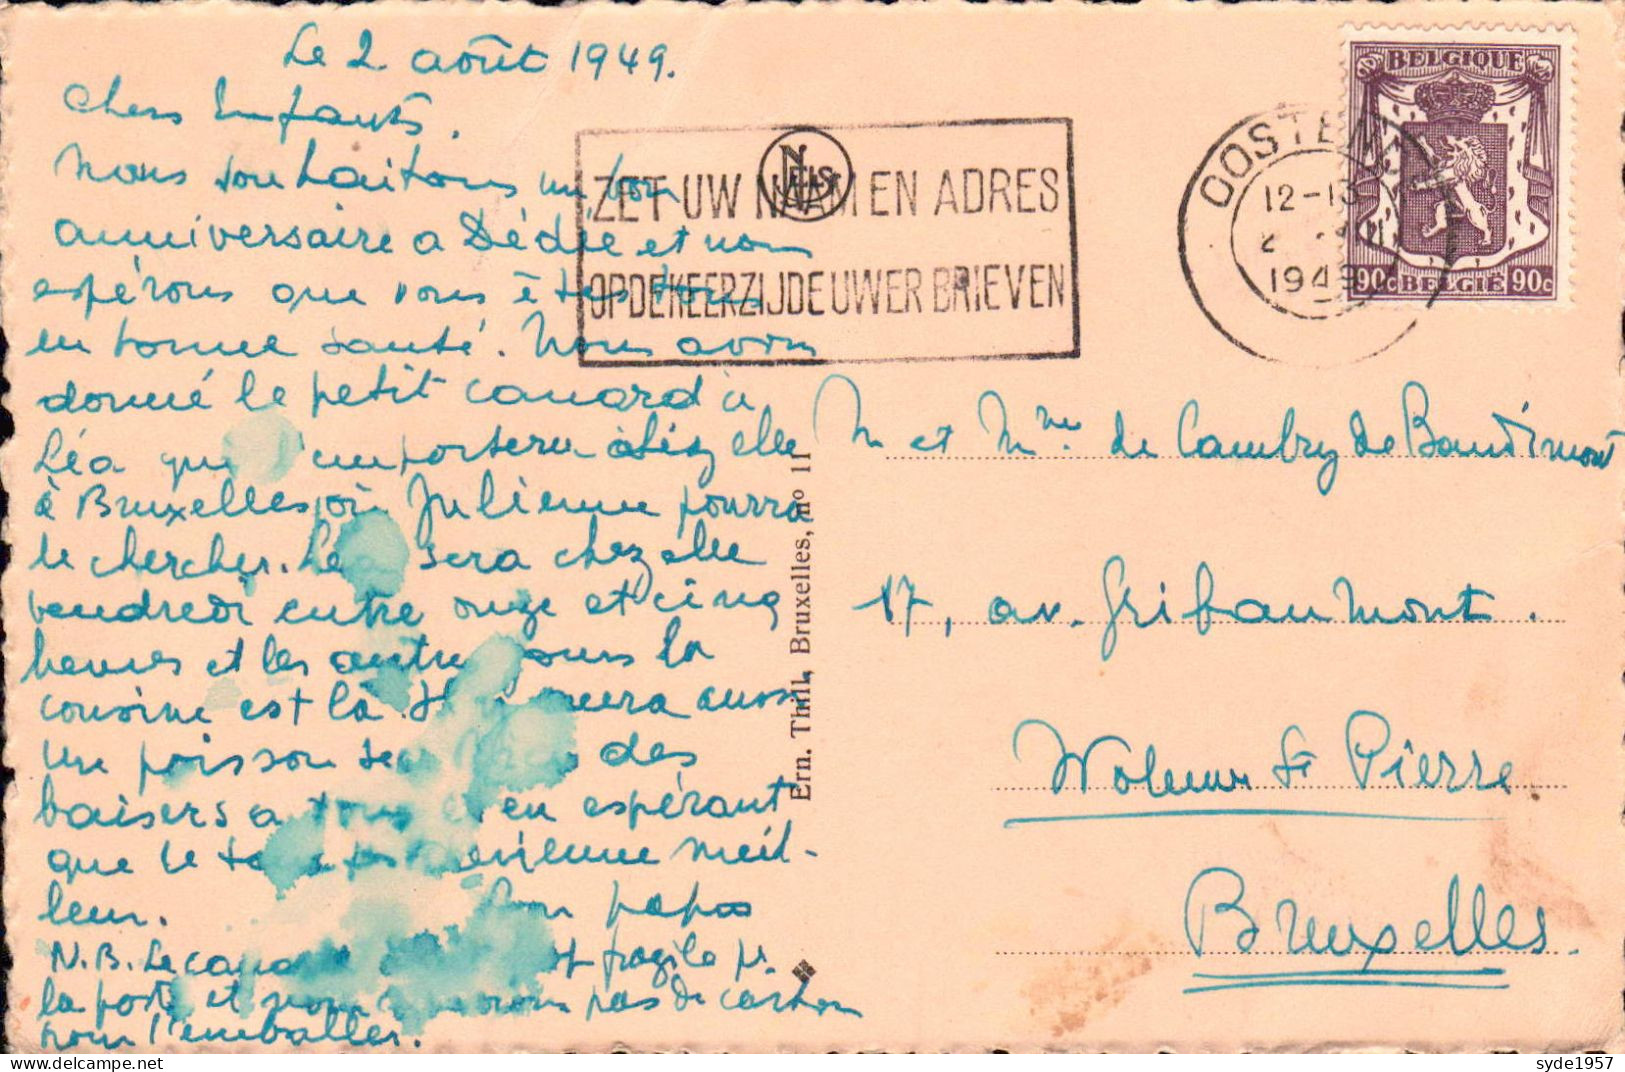 Le 2 août 1949.
Chers Enfants.
Nous souhaitons un bon
anniversaire a Dédée et nous
espérons que vous êtes tous
en bonne santé. Nous avons
donné le petit canard à
Léa qui l'emportera chez elle
à Bruxelles où Julienne pourra
le chercher. Léa sera chez elle
vendredi entre onze et cinq
heures et les autres jours la
cousine est là.
un poisson des
baisers a tous et en espérant
que le temps devienne meil-
leur. Bon papa
N.B. Le canard est fragile pr.
la poste et nous n'avons pas de carton
pour l'emballer.
NELS
ZET UW NAAM EN ADRES
OP DE KEERZIJDE UWER BRIEVEN
OOSTENDE
12-13
1949
BELGIQUE
90c BELGIE 90c
Ern. Thill, Bruxelles, no 11
M et Mme de Cambry de Baudimont
17, av. Gribaumont.
Woluwe St Pierre
Bruxelles.
syde1957